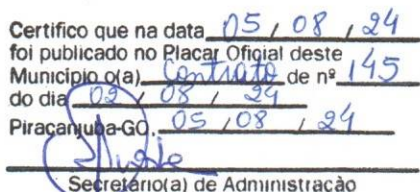 Certifico que na data 05 / 08 / 24
foi publicado no Placar Oficial deste
Município o(a) Contrato de nº 145
do dia 02 / 08 / 24
Piracanjuba-GO, 05 / 08 / 24
Secretário(a) de Administração